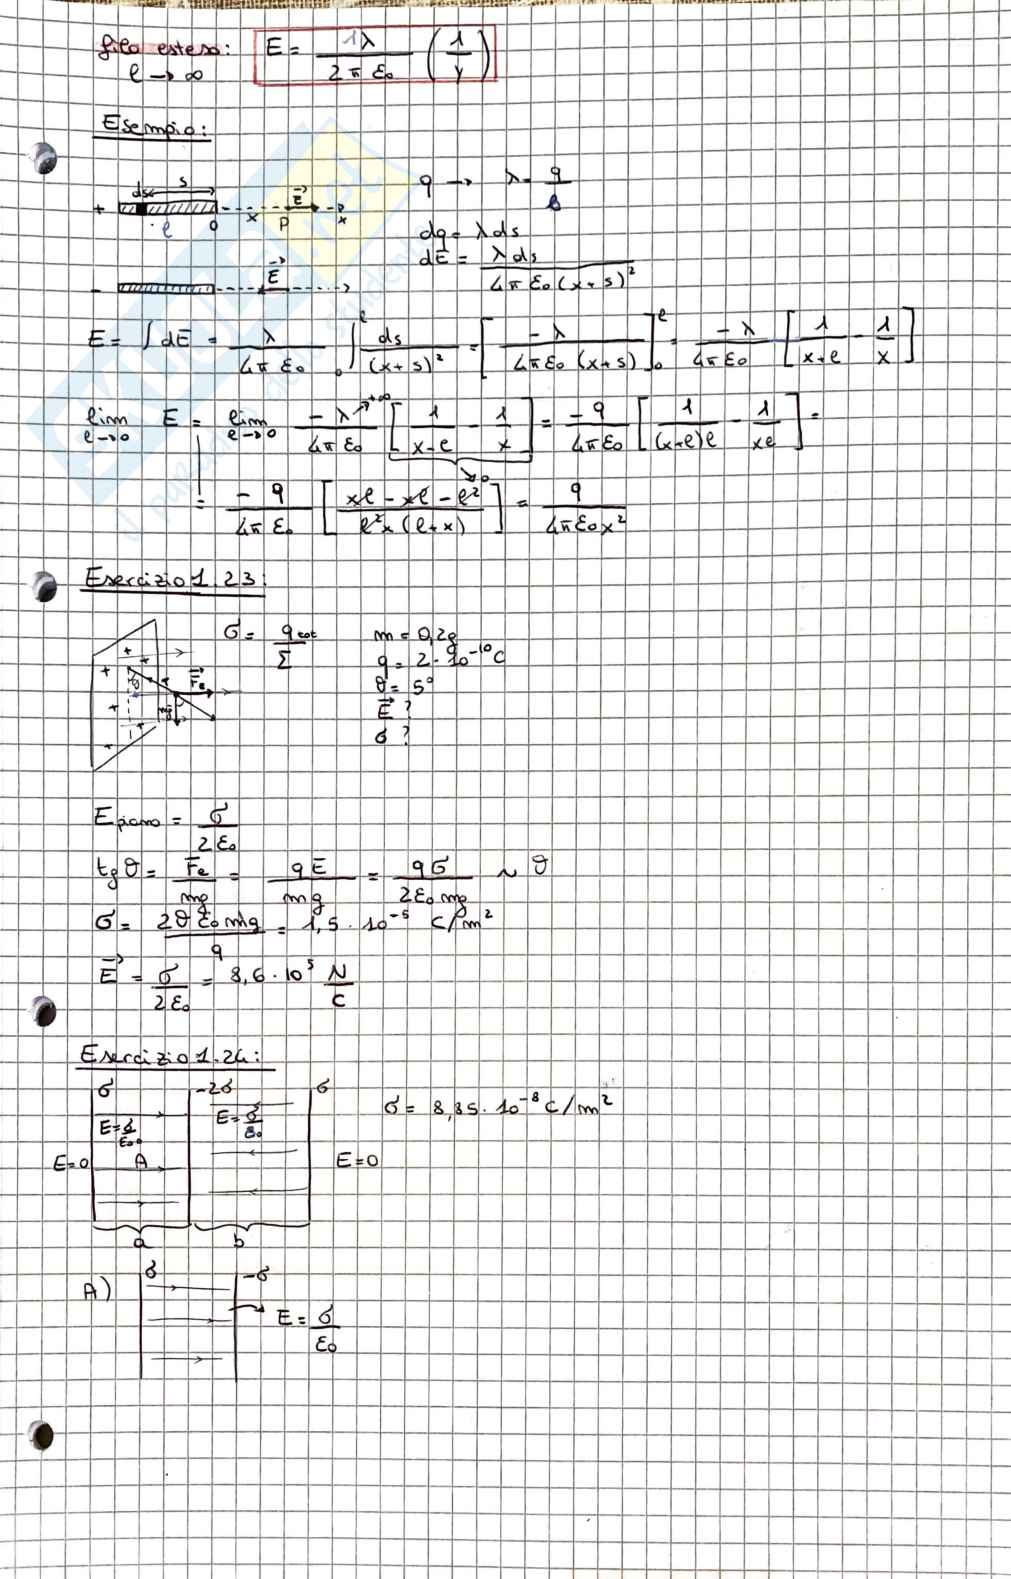 filo esteso: E = 1λ / 2π ε₀ (1/y)
l → ∞
Esempio:
ds s
q → λ = q/l
+ l O x P E⃗ x
dq = λ ds
dE⃗ = λ ds / 4π ε₀ (x+s)²
- E⃗
E = ∫ dE = λ / 4π ε₀ ∫₀ˡ ds / (x+s)² = [ -λ / 4π ε₀ (x+s) ]₀ˡ = -λ / 4π ε₀ [ 1/(x+l) - 1/x ]
lim l→0 E = lim l→0 -λ →+∞ / 4π ε₀ [ 1/(x-l) - 1/x ] →0 = -q / 4π ε₀ [ 1/(x+l)l - 1/xl ] =
= -q / 4π ε₀ [ xl - xl - l² / l²x (l+x) ] = q / 4π ε₀ x²
Esercizio 1.23:
σ = q tot / Σ
m = 0,2g
q = 2 · 10⁻¹⁰ C
θ = 5°
E⃗ ?
σ ?
+ + + + + + - F⃗e mg
E piano = σ / 2ε₀
tg θ = Fe / mg = qE / mg = qσ / 2ε₀ mg ~ θ
σ = 2θ ε₀ mg / q = 1,5 · 10⁻⁵ C/m²
E⃗ = σ / 2ε₀ = 8,6 · 10⁵ N/C
Esercizio 1.24:
σ -2σ σ
σ = 8,85 · 10⁻⁸ C/m²
E = σ/ε₀ E = σ/ε₀
E=0 A E=0
a b
A) σ -σ
E = σ / ε₀